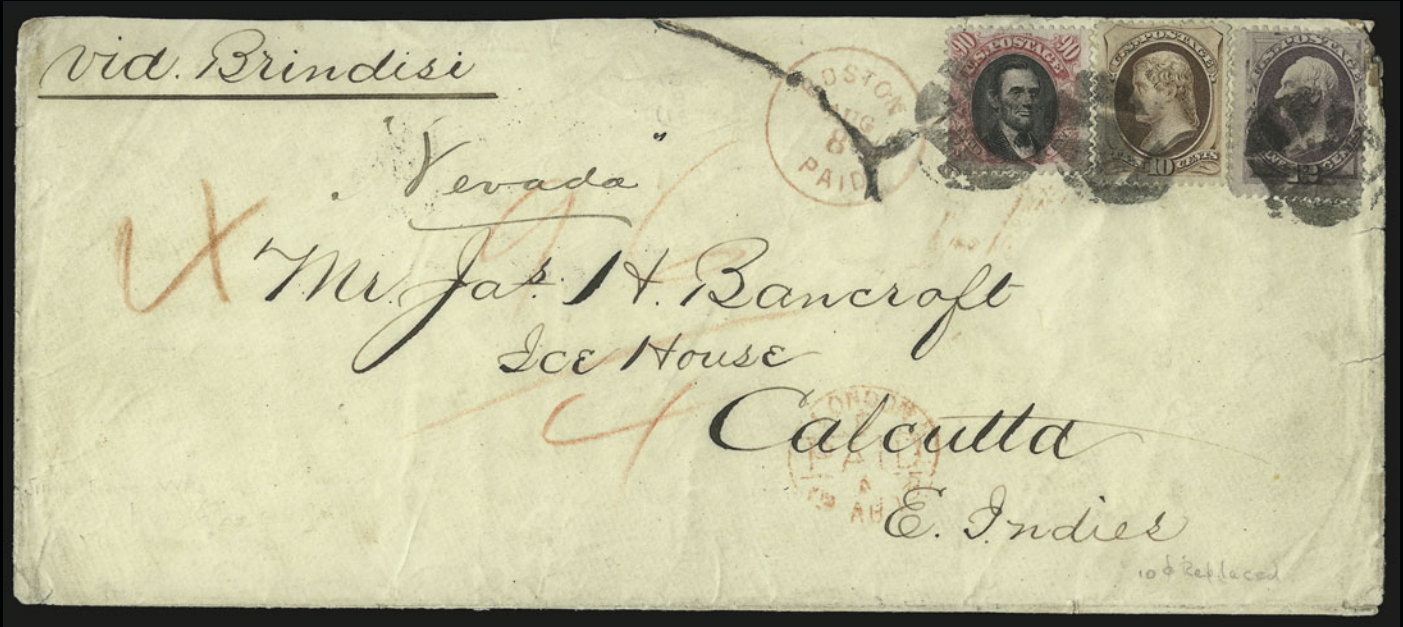 via. Brindisi
BOSTON
AUG
8
PAID
90 U.S. POSTAGE 90
U.S. POSTAGE
TEN 10 CENTS
U.S. POSTAGE
12
"Nevada"
Mr. Jas. H. Bancroft
Ice House
Calcutta
LONDON
PAID
AU
E. Indies
10¢ Replaced